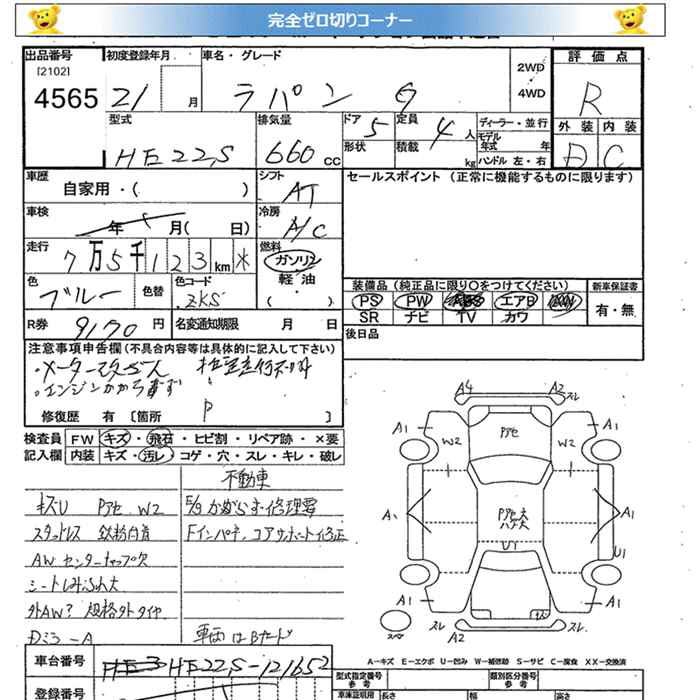 完全ゼロ切りコーナー
出品番号 初度登録年月 車名・グレード 評価点
[2102] 2WD
4565 21 月 ラパン G 4WD R
型式 排気量 ドア 5 定員 4 人 ディーラー・並行 外装 内装
モデル年式 年
HE22S 660 cc 形状 積載 kg ハンドル 左・右 D C
車歴 シフト セールスポイント (正常に機能するものに限ります)
自家用・( ) AT
車検 冷房
年 月( 日) A/C
走行 燃料
7万5千123km * ガソリン
色 色替 色コード 軽油・ 装備品 (純正品に限り○をつけてください) 新車保証書
ブルー ZKS ( ) PS PW エアB 有・無
SR ナビ TV カワ
R券 9170 円 名変通知期限 月 日 後日品
注意事項申告欄 (不具合内容等は具体的に記入して下さい)
・メーター改ざん
・エンジンかからず
修復歴 有 [箇所 ]
検査員 FW キズ・飛石・ヒビ割・リペア跡・×要
記入欄 内装 キズ・汚レ・コゲ・穴・スレ・キレ・破レ
不動車
キズU Pアセ W2
スタッドレス 鉄粉
AW センターキャップ欠
シートしみ
外AW? 規格外タイヤ
Dミラ-A
E/gかからず 修理要
Fインパネ、コアサポート修正
車両はBヤード
A4 A2 スレ
A1 W2 Pアセ W2 A1
A1 U1 A1
U1
A1 A1
スレ A2 スレ
A-キズ E-エクボ U-凹み W-補修跡 S-サビ C-腐食 XX-交換済
車台番号 HE22S-121652
登録番号
型式指定番号 参考 類別区分番号 参考
車庫証明用 長さ 幅 高さ